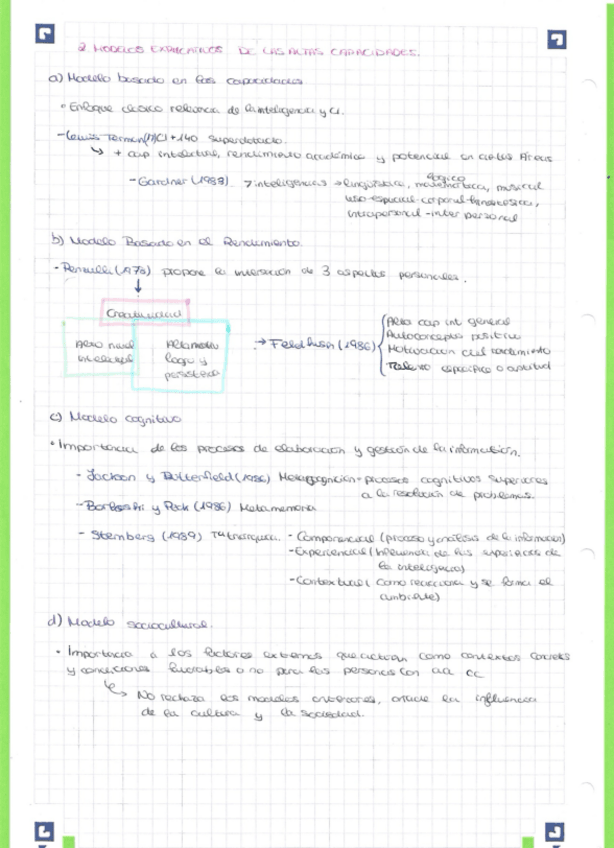 2 MODELOS EXPLICATIVOS DE LAS ALTAS CAPACIDADES.
a) Modelo basado en las capacidades
• Enfoque clásico relevancia de la inteligencia y CI.
- Lewis Terman CI +140 superdotado.
↳ + cap intelectual, rendimiento académico y potencial en ciertas Áreas
- Gardner (1983) 7 inteligencias → lingüística, lógico matemática, musical
viso-espacial-corporal-kinestésica,
intrapersonal - interpersonal
b) Modelo Basado en el Rendimiento.
- Renzulli (1978) propone la interacción de 3 aspectos personales.
↓
Creatividad
Alto nivel
intelectual
Alta motiv
logro y
persistencia
→ Feldhusen (1986)
Alta cap int general
Autoconcepto positivo
Motivación al rendimiento
Talento específico o aptitud
c) Modelo cognitivo
• Importancia de los procesos de elaboración y gestión de la información.
- Jackson y Butterfield (1986) Metacognición - procesos cognitivos superiores
a la resolución de problemas.
- Borkoski y Peck (1986) Metamemoria
- Sternberg (1989) Tª triárquica. - Componencial (proceso y análisis de la información)
- Experiencial (Influencia de las experiencias de
la inteligencia)
- Contextual (como reacciona y se forma el
ambiente)
d) Modelo sociocultural.
• Importancia a los factores externos que actúan como contextos
y condiciones favorables o no para las personas con aa cc
↳ No rechaza los modelos anteriores, añade la influencia
de la cultura y la sociedad.